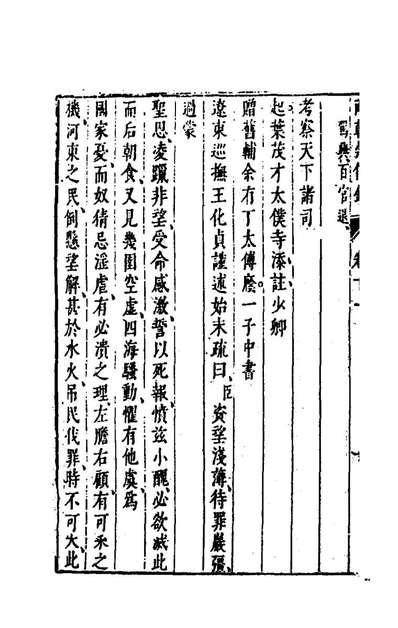 兩朝從信錄 卷十一
駕興百官退
考察天下諸司
起葉茂才太僕寺添註少卿
贈舊輔余有丁太傅廕一子中書
遼東巡撫王化貞謹述始末疏曰臣資望淺薄、待罪巖疆、
過蒙
聖恩、凌躐非望、受命感激、誓以死報、憤兹小醜、必欲滅此
而后朝食、又見幾圍空虛、四海騷動、懼有他虞、爲
國家憂、而奴猜忌淫虐、有必潰之理、左膽右顧、有可乘之
機、河東之民、倒懸望解、甚於水火、吊民伐罪、時不可失、此